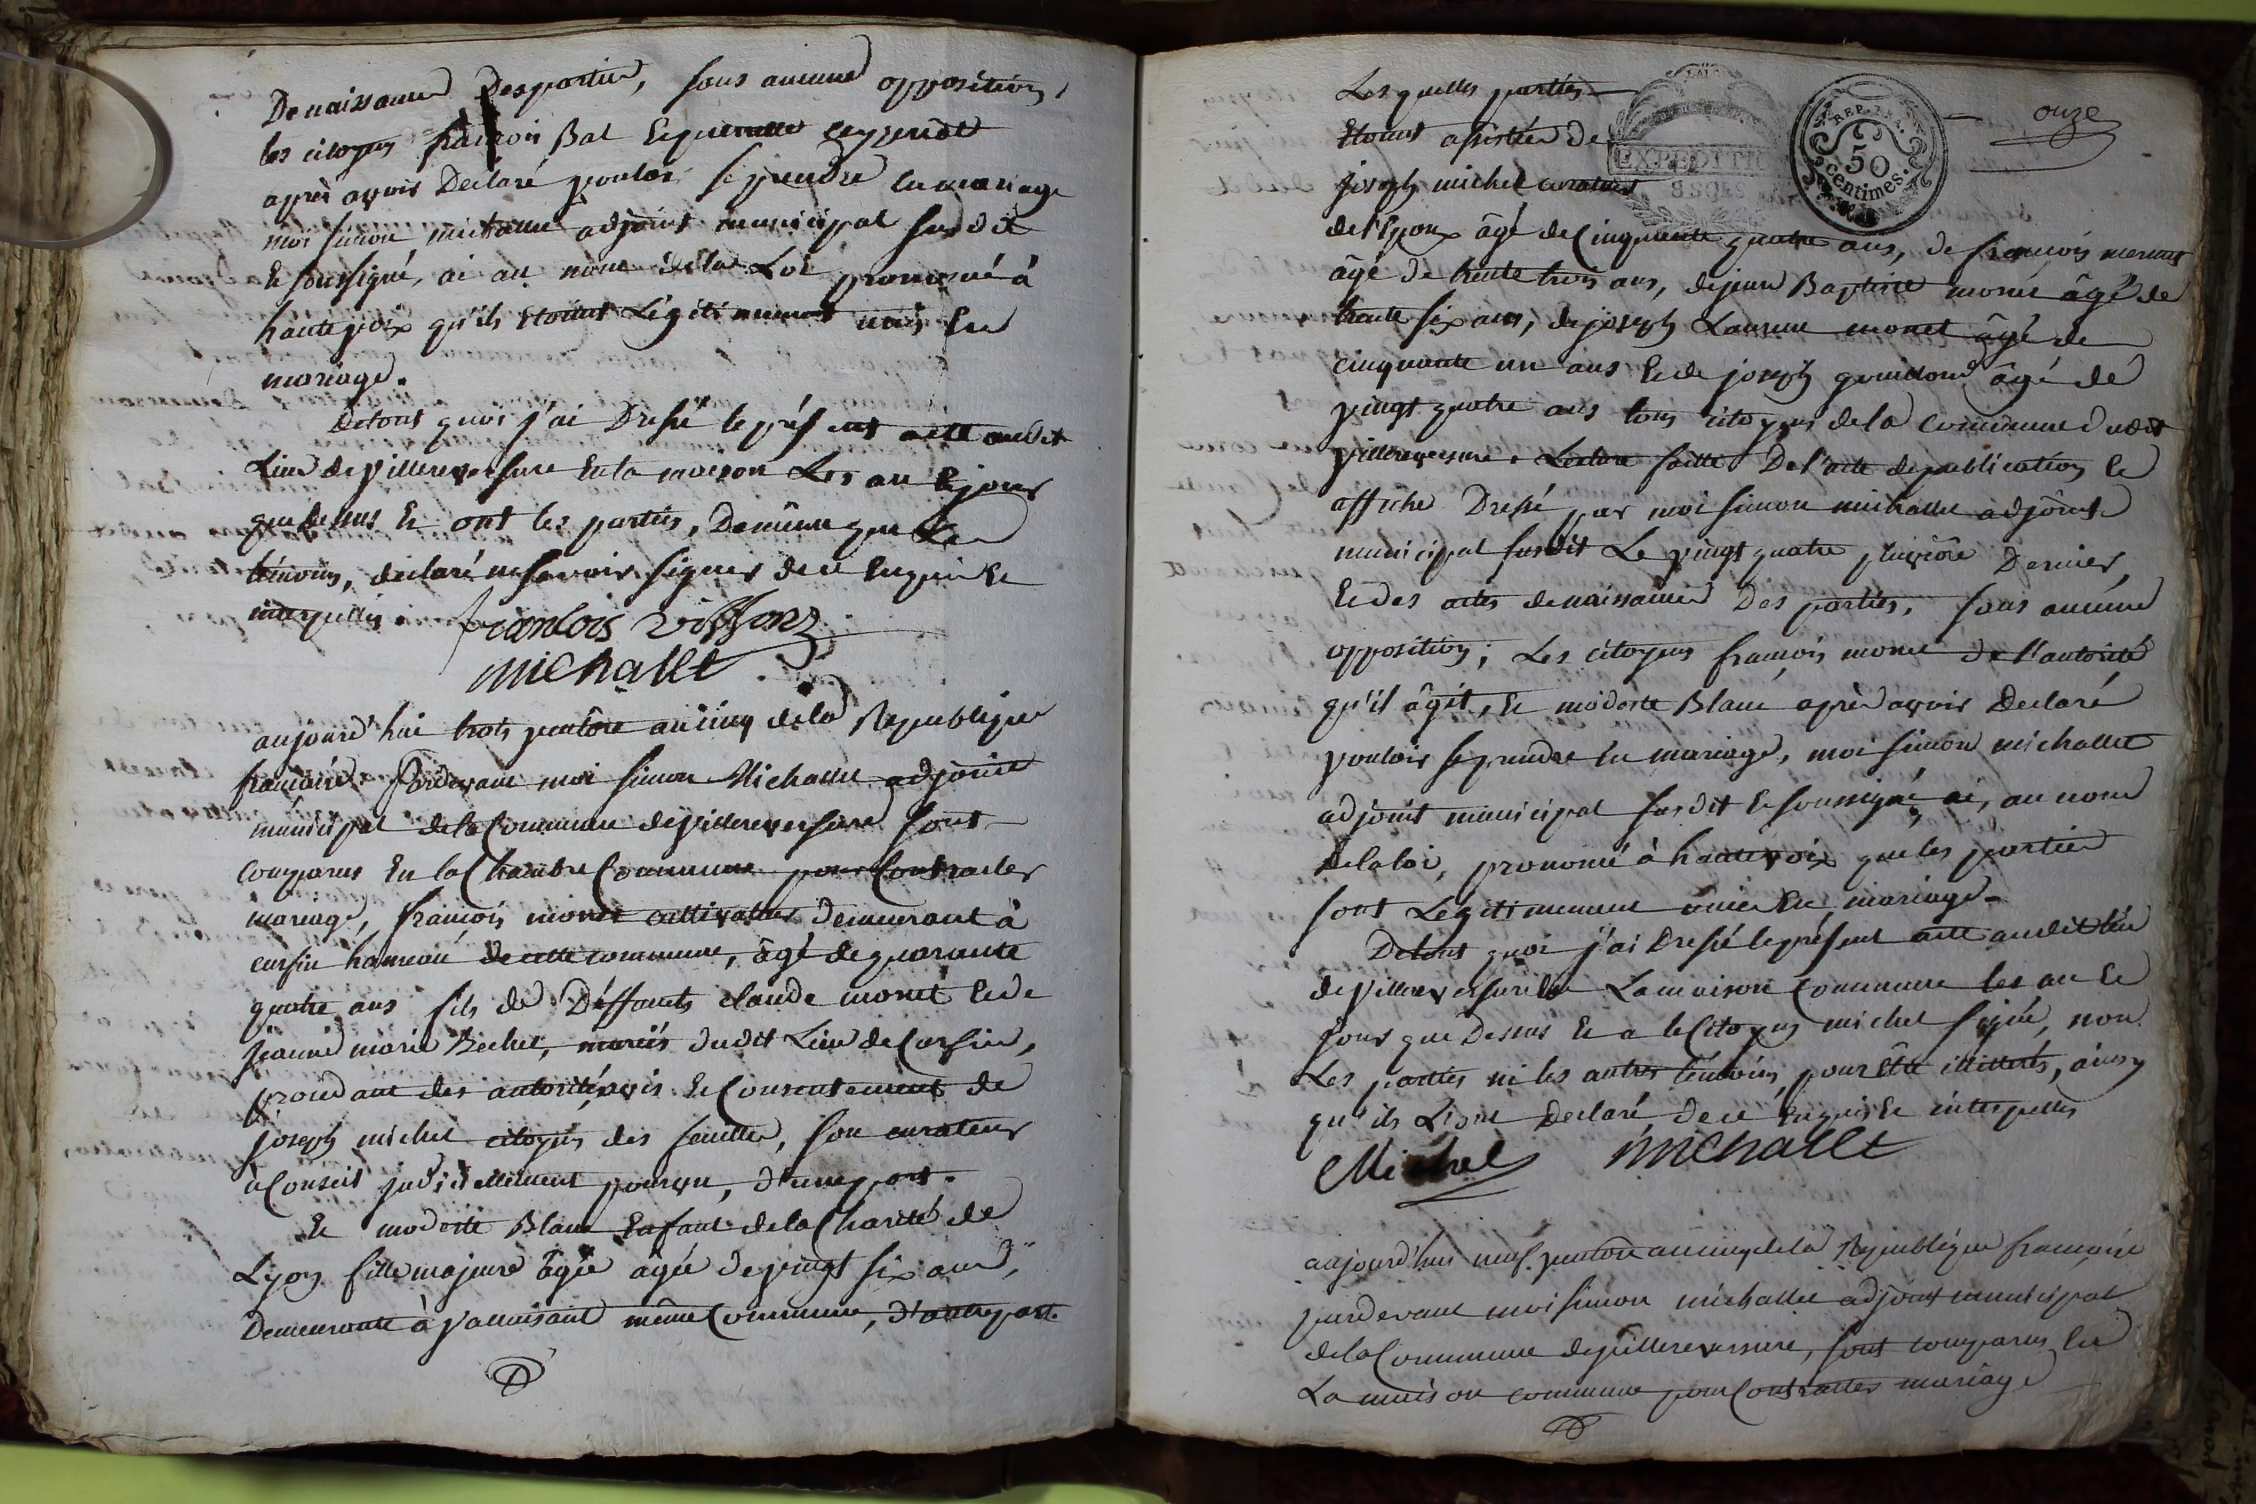 De naissance Des parties, sans aucune opposition,
les citoyens françois Bal Et perrette
après avoir Declaré vouloir se prendre en mariage
moi simon michallet adjoint municipal susdit
Et soussigné, ai au nom de la Loi prononcé à
haute voix qu'ils étoient Légitimement unis En
mariage.
De tout quoi j'ai Dressé le présent acte audit
Lieu de villereversure En la maison Les an Et jour
que dessus Et ont les parties, De même que Les
témoins, declaré ne savoir signer de ce Enquis Et
interpellés. françois
michallet
aujourd'hui trois ventôse an cinq de la Republique
françoise Pardevant moi simon Michallet adjoint
municipal de la Commune de villereversure sont
comparus En la Chambre Commune pour Contracter
mariage, françois monet cultivateur demeurant à
cursin hameau de cette commune, âgé de quarante
quatre ans fils de Deffunts claude monet Et de
jeanne marie Bechet, mariés dudit Lieu de Cursin,
procédant des autorité, avis Et Consentement de
joseph michel citoyen des feuilles, son curateur
à Conseil judiciellement pourvu, d'une part.
Et modeste Blanc Enfant de la Charité de
Lyon fille majeure âgée âgée de vingt six ans,
Demeurante à même Commune, d'autre part.
onze
REP. FRA.
50
centimes.
EXPEDITION
Les quelles parties
étoient assistées de
joseph michel curateur
de l'Epoux âgé de Cinquante quatre ans, de françois
âgé de trente trois ans, de jean Baptiste monet âgé de
trente six ans, de joseph Laurent monet âgé de
cinquante un ans Et de joseph âgé de
vingt quatre ans tous citoyens de la commune dudit
villereversure. Lecture faitte De l'acte de publication Et
affiche Dressé par moi simon michallet adjoint
municipal susdit Le vingt quatre pluviôse Dernier,
Et des actes de naissance Des parties, sans aucune
opposition; Les citoyens françois monet de l'autorité
qu'il âgit, Et modeste Blanc après avoir Declaré
vouloir se prendre En mariage, moi simon michallet
adjoint municipal susdit Et soussigné, ai, au nom
de la loi, prononcé à haute voix que les parties
sont Légitimement unies En mariage.
De tout quoi j'ai Dressé le présent acte audit lieu
de villereversure En La maison Commune les an Et
jour que Dessus Et a le Citoyen michel signé, non
Les parties ni les autres témoins, pour être illitterés, ainsy
qu'ils L'ont Declaré de ce Enquis Et interpellés
Michel michallet
aujourd'hui neuf ventôse an cinq de la Republique françoise
pardevant moi simon michallet adjoint municipal
de la Commune de villereversure, sont comparus En
La maison commune pour Contracter mariage